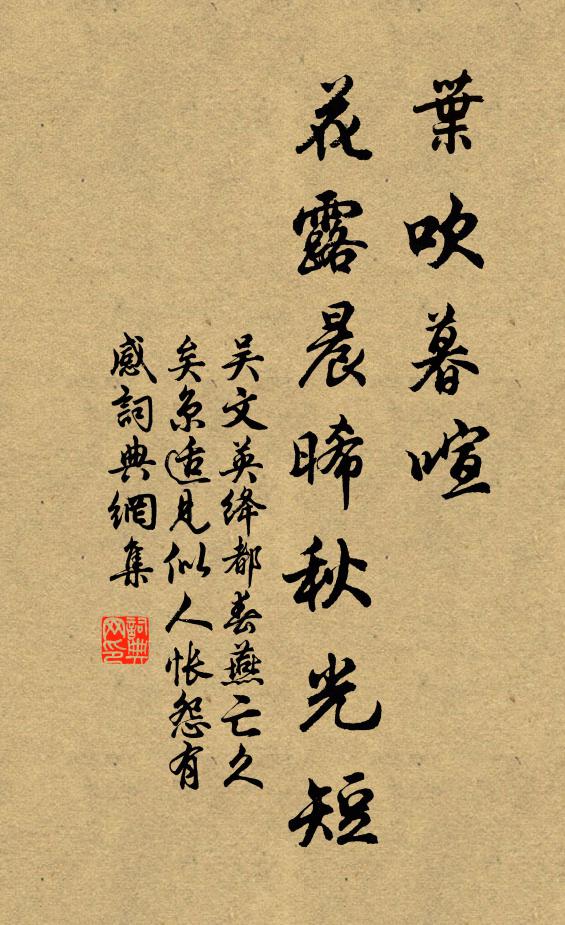 葉吹暮喧
花露晨晞秋光短
吴文英绛都春燕亡久
矣京适见似人怅怨有
感詞典網集
詞典网印